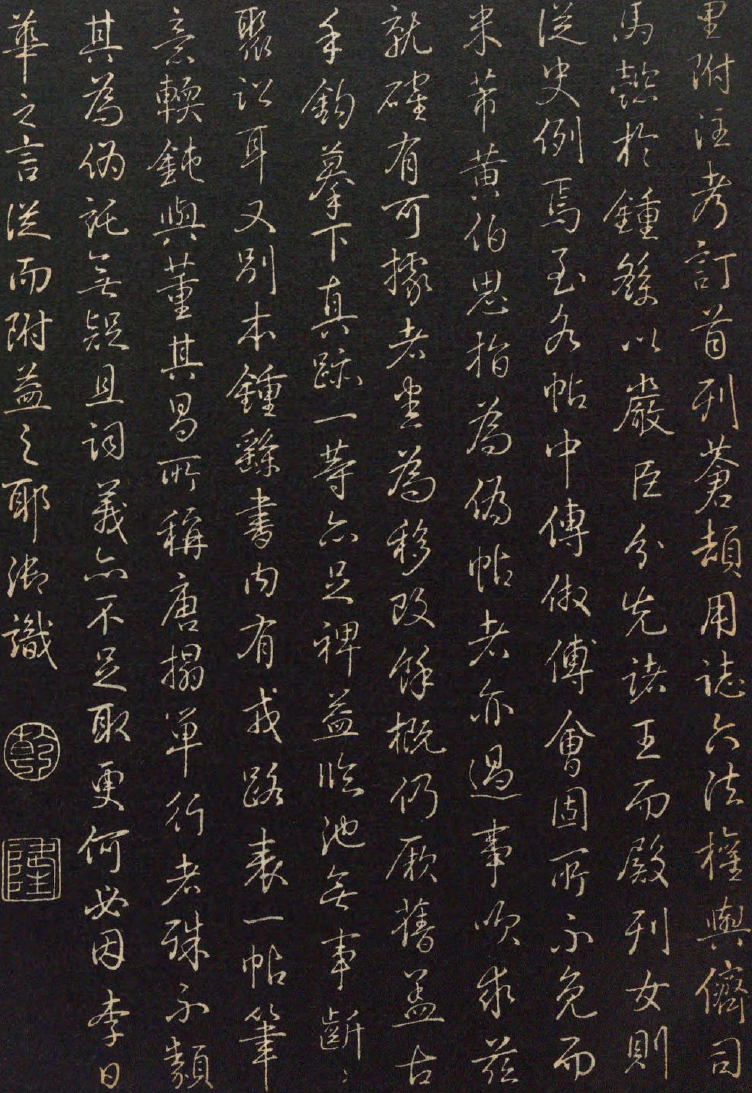 里附注考訂首刊蒼頡用誌六法權輿儕司
馬懿於鍾繇以嚴臣分先諸王而殿列女則
從史例焉至各帖中傳倣傅會固所不免而
米芾黄伯思指為偽帖者亦過事吹求茲
就確有可據者悉為移改餘概仍厥舊蓋古
手鈎摹下真跡一等亦足裨益臨池無事齗〻
聚訟耳又别本鍾繇書内有戎路表一帖筆
意輭鈍與董其昌所稱唐搨單行者殊不類
其為偽託無疑且詞義亦不足取更何必因李日
華之言從而附益之耶御識
乾
隆